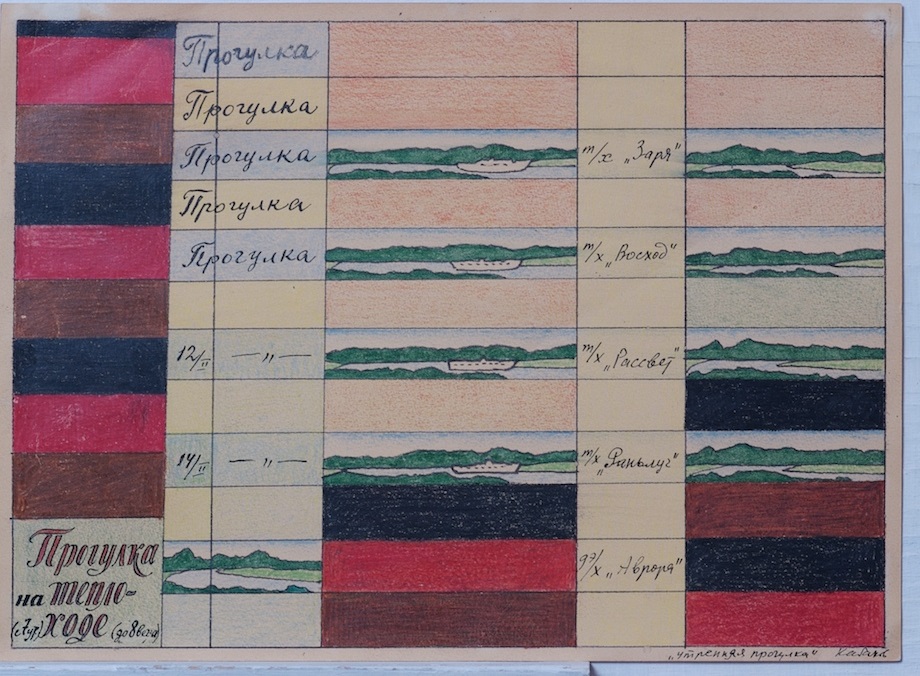 Прогулка
Прогулка
Прогулка т/х „Заря"
Прогулка
Прогулка т/х „Восход"
12/II — „ — т/х „Рассвет"
14/II — „ — т/х
э/х „Аврора"
Прогулка
на тепло-
ходе
(с 7 ут.) (до 8 веч.)
„Утренняя прогулка"